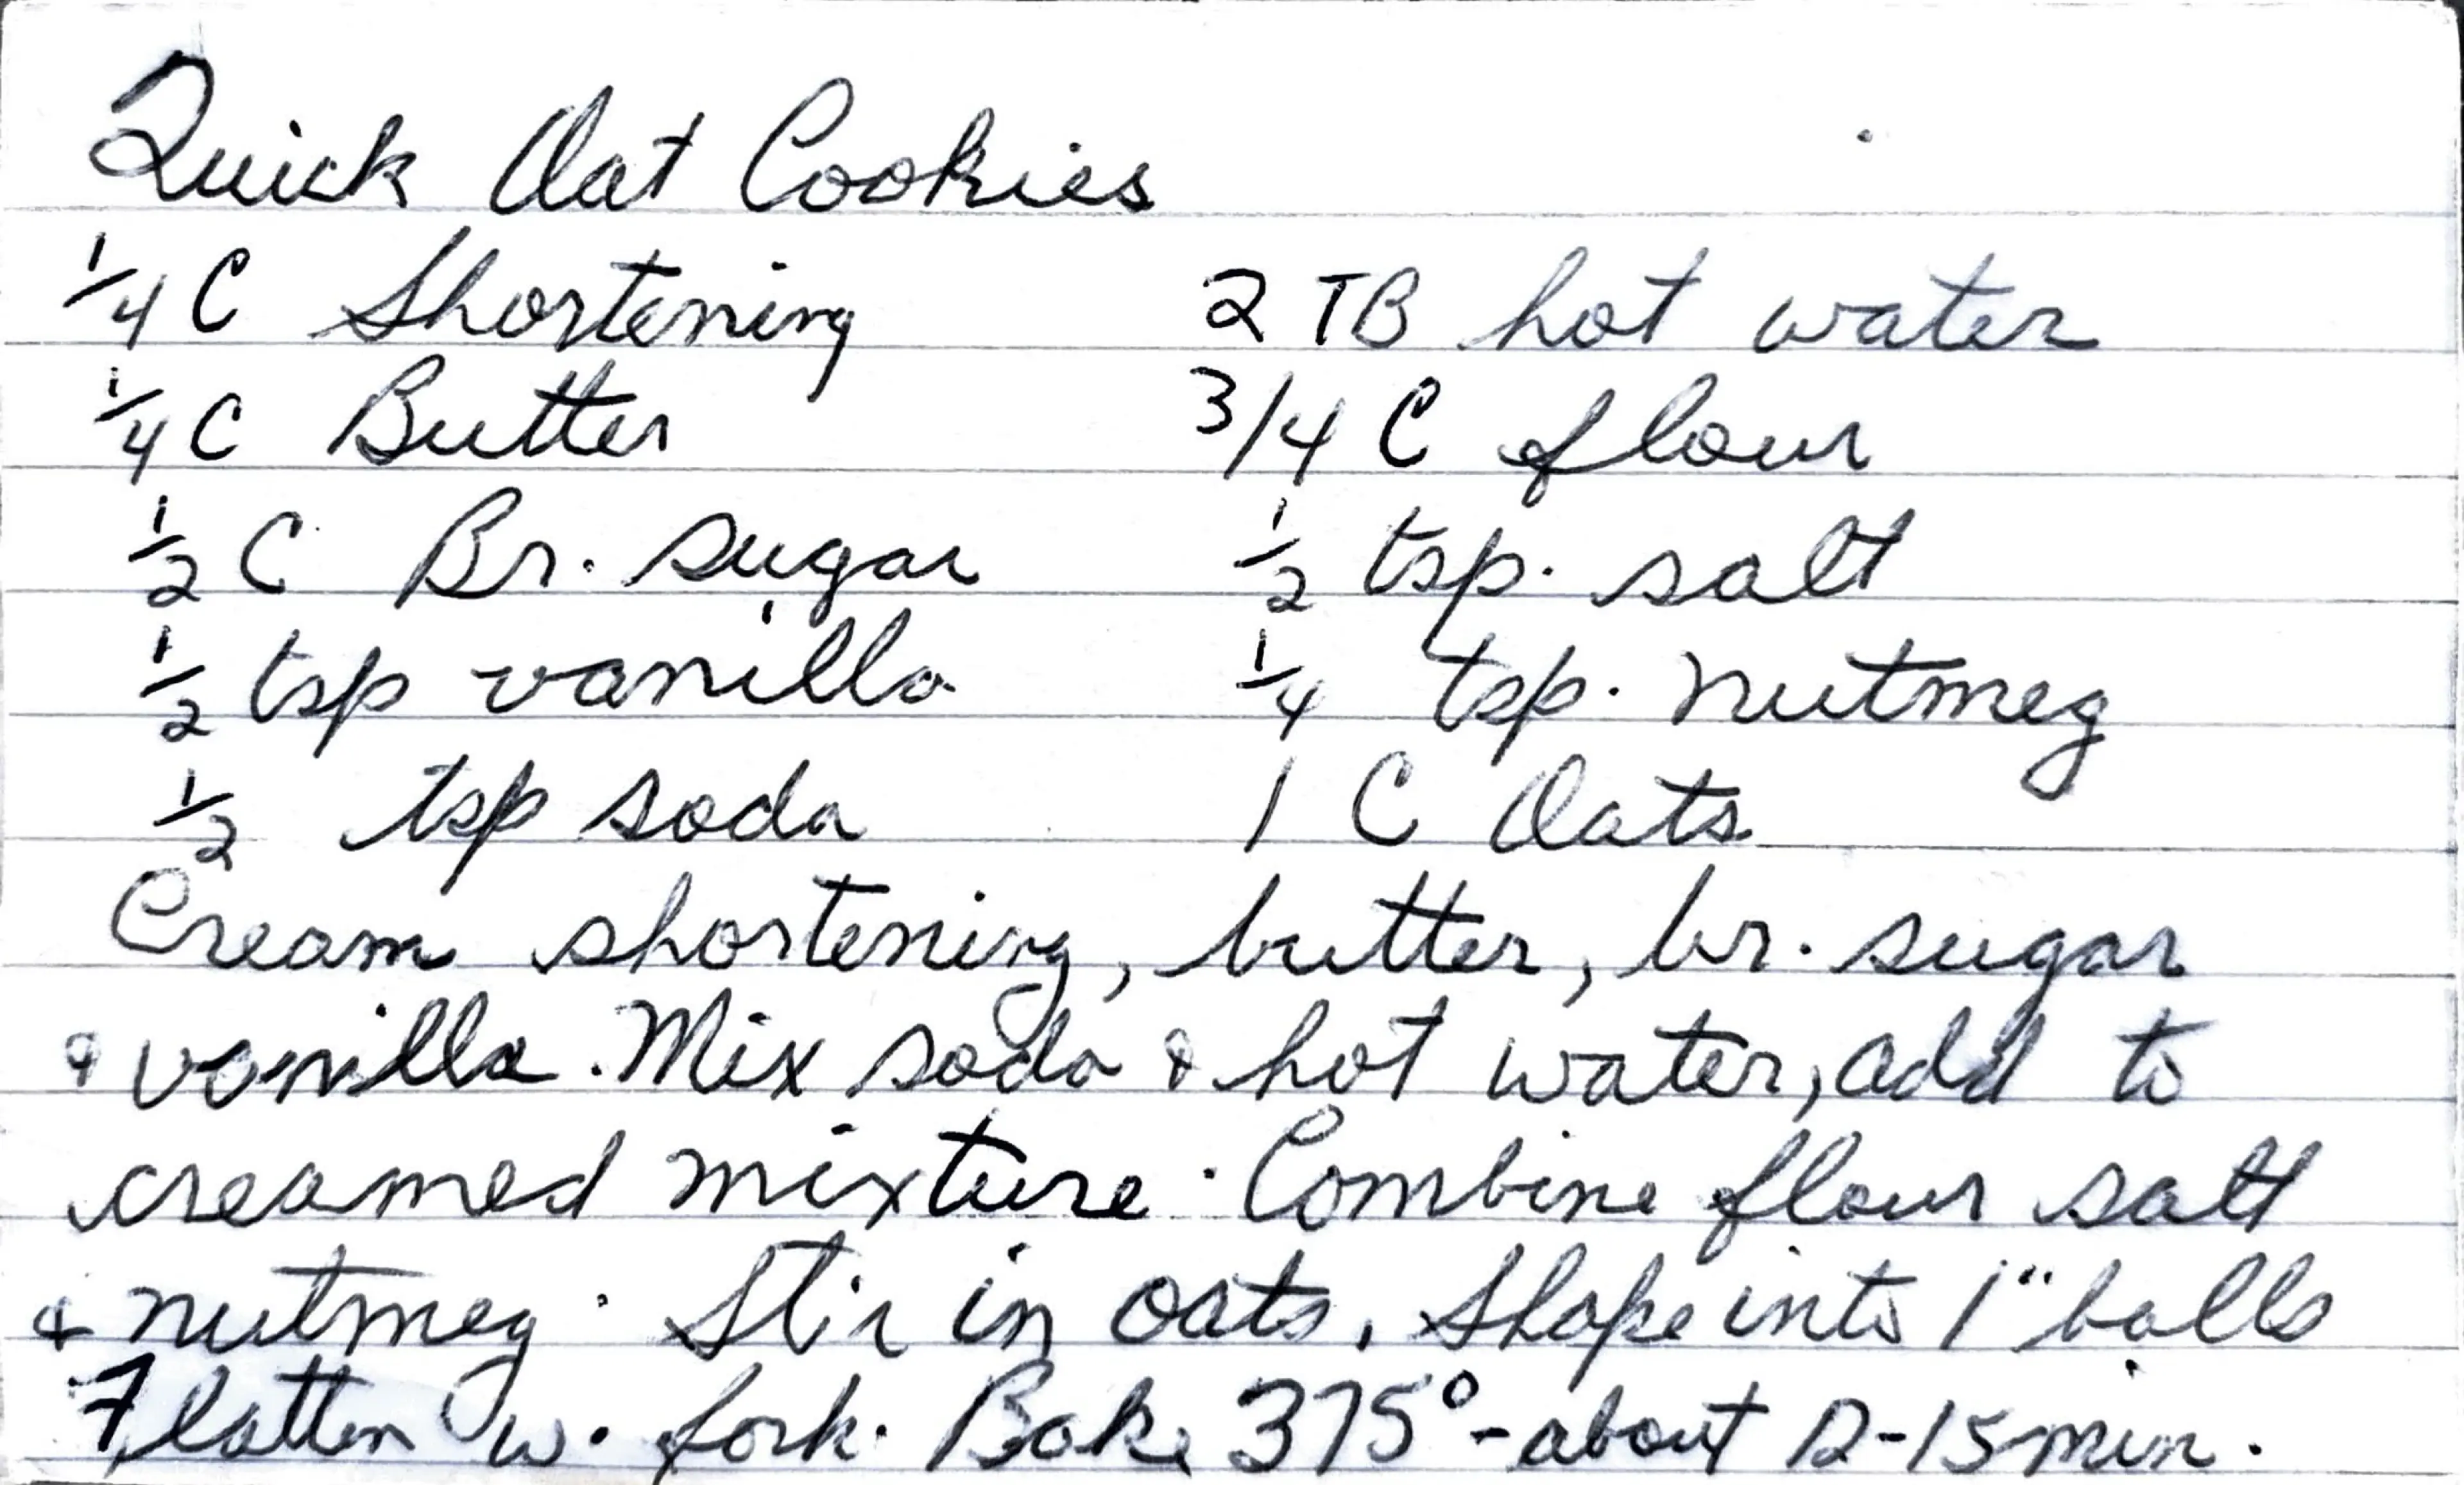 Quick Oat Cookies
1/4 C Shortening 2 TB hot water
1/4 C Butter 3/4 C flour
1/2 C Br. sugar 1/2 tsp. salt
1/2 tsp vanilla 1/4 tsp. nutmeg
1/2 tsp soda 1 C Oats
Cream shortening, butter, br. sugar
& vanilla. Mix soda & hot water, add to
creamed mixture. Combine flour salt
& nutmeg. Stir in oats. Shape into 1" balls
Flatten w. fork. Bake 375° - about 12-15 min.